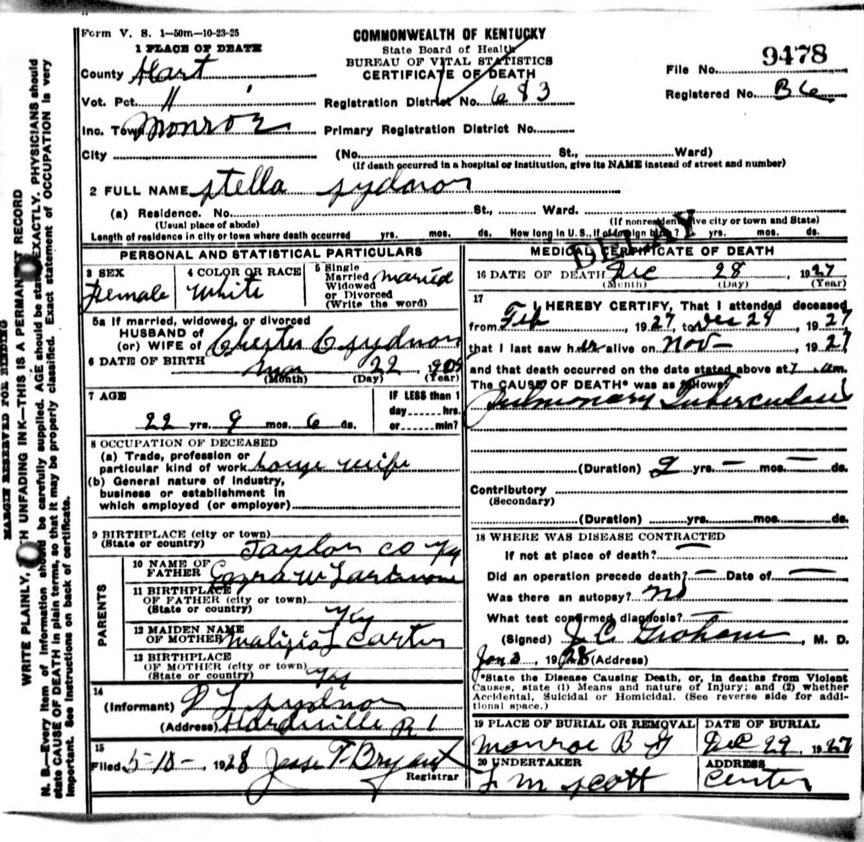 Form V. S. 1—50m—10-23-25
1 PLACE OF DEATH
COMMONWEALTH OF KENTUCKY
State Board of Health
BUREAU OF VITAL STATISTICS
CERTIFICATE OF DEATH
File No. 9478
County Hart
Vot. Pct. 11
Registration District No. 683
Registered No. B6
Inc. Town Monroe
Primary Registration District No.
City (No. St., Ward)
(If death occurred in a hospital or institution, give its NAME instead of street and number)
2 FULL NAME Stella Sydnor
(a) Residence. No. St., Ward.
(Usual place of abode) (If nonresident give city or town and State)
Length of residence in city or town where death occurred yrs. mos. ds. How long in U. S., if of foreign birth? yrs. mos. ds.
DELAY
PERSONAL AND STATISTICAL PARTICULARS
3 SEX Female
4 COLOR OR RACE White
5 Single Married Widowed or Divorced (Write the word) married
5a If married, widowed, or divorced
HUSBAND OF
(or) WIFE of Chester C Sydnor
6 DATE OF BIRTH Mar 22 1905
(Month) (Day) (Year)
7 AGE
22 yrs. 9 mos. 6 ds.
IF LESS than 1
day hrs.
or min?
8 OCCUPATION OF DECEASED
(a) Trade, profession or
particular kind of work house wife
(b) General nature of industry,
business or establishment in
which employed (or employer)
9 BIRTHPLACE (city or town)
(State or country) Taylor Co Ky
PARENTS
10 NAME OF
FATHER Ezra W
11 BIRTHPLACE
OF FATHER (city or town)
(State or country) Ky
12 MAIDEN NAME
OF MOTHER Carter
13 BIRTHPLACE
OF MOTHER (city or town)
(State or country) Ky
14
(Informant) Sydnor
(Address) Hardyville R 1
15
Filed 5-18-, 1928 Jesse T Bryant
Registrar
MEDICAL CERTIFICATE OF DEATH
16 DATE OF DEATH Dec 28 1927
(Month) (Day) (Year)
17 I HEREBY CERTIFY, That I attended deceased
from Feb, 1927, to Dec 28, 1927
that I last saw her alive on Nov-, 1927
and that death occurred on the date stated above at 7 am.
The CAUSE OF DEATH* was as follows:
Pulmonary Tuberculosis
(Duration) 2 yrs. — mos. — ds.
Contributory
(Secondary)
(Duration) yrs. mos. ds.
18 WHERE WAS DISEASE CONTRACTED
If not at place of death? —
Did an operation precede death? — Date of —
Was there an autopsy? no
What test confirmed diagnosis?
(Signed) J C Graham, M. D.
Jan 3, 1928 (Address)
*State the Disease Causing Death, or, in deaths from Violent
Causes, state (1) Means and nature of Injury; and (2) whether
Accidental, Suicidal or Homicidal. (See reverse side for addi-
tional space.)
19 PLACE OF BURIAL OR REMOVAL Monroe B G
DATE OF BURIAL Dec 29, 1927
20 UNDERTAKER J M Scott
ADDRESS Center
MARGIN RESERVED FOR BINDING
WRITE PLAINLY, WITH UNFADING INK—THIS IS A PERMANENT RECORD
N. B.—Every item of information should be carefully supplied. AGE should be stated EXACTLY. PHYSICIANS should
state CAUSE OF DEATH in plain terms, so that it may be properly classified. Exact statement of OCCUPATION is very
important. See instructions on back of certificate.